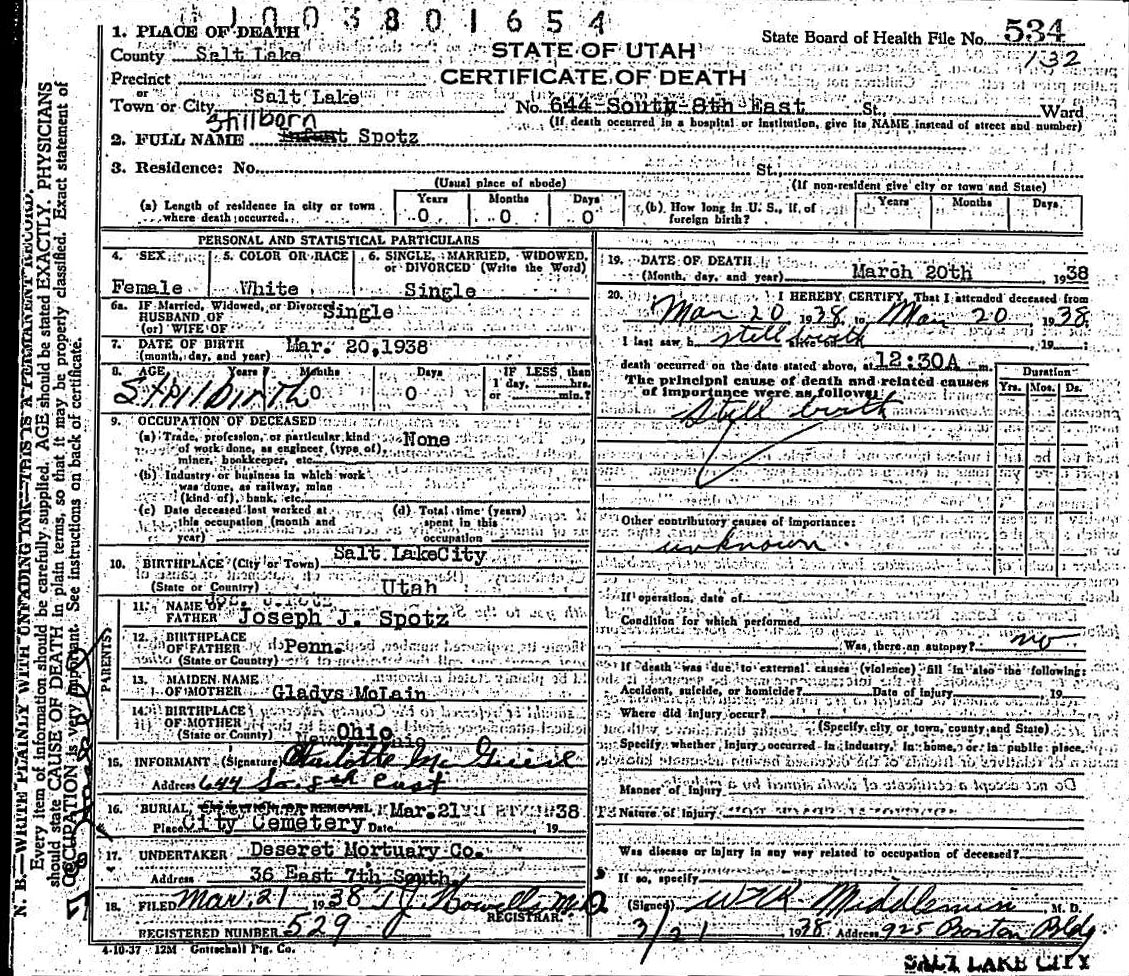 1003801654
1. PLACE OF DEATH
County Salt Lake
Precinct
or
Town or City Salt Lake
STATE OF UTAH
CERTIFICATE OF DEATH
State Board of Health File No. 534
132
No. 644 South 8th East St. Ward
(If death occurred in a hospital or institution, give its NAME instead of street and number)
Stillborn
2. FULL NAME Infant Spotz
3. Residence: No. St.
(Usual place of abode)
(If non-resident give city or town and State)
(a) Length of residence in city or town where death occurred.
Years 0 Months 0 Days 0
(b) How long in U. S., if of foreign birth?
Years Months Days
PERSONAL AND STATISTICAL PARTICULARS
4. SEX Female
5. COLOR OR RACE White
6. SINGLE, MARRIED, WIDOWED, or DIVORCED (Write the Word) Single
6a. IF Married, Widowed, or Divorced Single
HUSBAND OF
(or) WIFE OF
7. DATE OF BIRTH
(month, day, and year) Mar. 20,1938
8. AGE Years Months Days
Stillbirth 0 0
IF LESS than 1 day, hrs. or min.?
9. OCCUPATION OF DECEASED
(a) Trade, profession, or particular kind of work done, as engineer (type of), miner, bookkeeper, etc. None
(b) Industry or business in which work was done, as railway, mine (kind of), bank, etc.
(c) Date deceased last worked at this occupation (month and year)
(d) Total time (years) spent in this occupation
10. BIRTHPLACE (City or Town) Salt LakeCity
(State or Country) Utah
PARENTS
11. NAME OF FATHER Joseph J. Spotz
12. BIRTHPLACE OF FATHER Penn.
(State or Country)
13. MAIDEN NAME OF MOTHER Gladys McLain
14. BIRTHPLACE OF MOTHER
(State or Country) Ohio
15. INFORMANT (Signature) Charlotte
Address 644 So. 8th East
16. BURIAL, CREMATION OR REMOVAL Mar. 21 38
Place City Cemetery Date , 19
17. UNDERTAKER Deseret Mortuary Co.
Address 36 East 7th South
18. FILED Mar. 21 1938 T J Howells M.D.
REGISTRAR.
REGISTERED NUMBER 529
4-10-37 12M Gottschall Ptg. Co.
19. DATE OF DEATH
(Month, day, and year) March 20th 1938
20. I HEREBY CERTIFY, That I attended deceased from
Mar 20 1938, to Mar 20 1938.
I last saw h still birth , 19 ;
death occurred on the date stated above, at 12:30A m.
The principal cause of death and related causes of importance were as follows:
Duration
Yrs. Mos. Ds.
Still birth
Other contributory causes of importance:
unknown
If operation, date of
Condition for which performed
Was there an autopsy? no
If death was due to external causes (violence) fill in also the following:
Accident, suicide, or homicide? Date of Injury 19
Where did injury occur?
(Specify city or town, county and State)
Specify whether injury occurred in industry, in home, or in public place.
Manner of Injury
Nature of Injury
Was disease or injury in any way related to occupation of deceased?
If so, specify
(Signed) Middlemiss, M. D.
3/21 1938 Address 925 Boston Bldg
SALT LAKE CITY
N. B.—WRITE PLAINLY WITH UNFADING INK—THIS IS A PERMANENT RECORD.
Every item of information should be carefully supplied. AGE should be stated EXACTLY. PHYSICIANS
should state CAUSE OF DEATH in plain terms, so that it may be properly classified. Exact statement of
OCCUPATION is very important. See instructions on back of certificate.